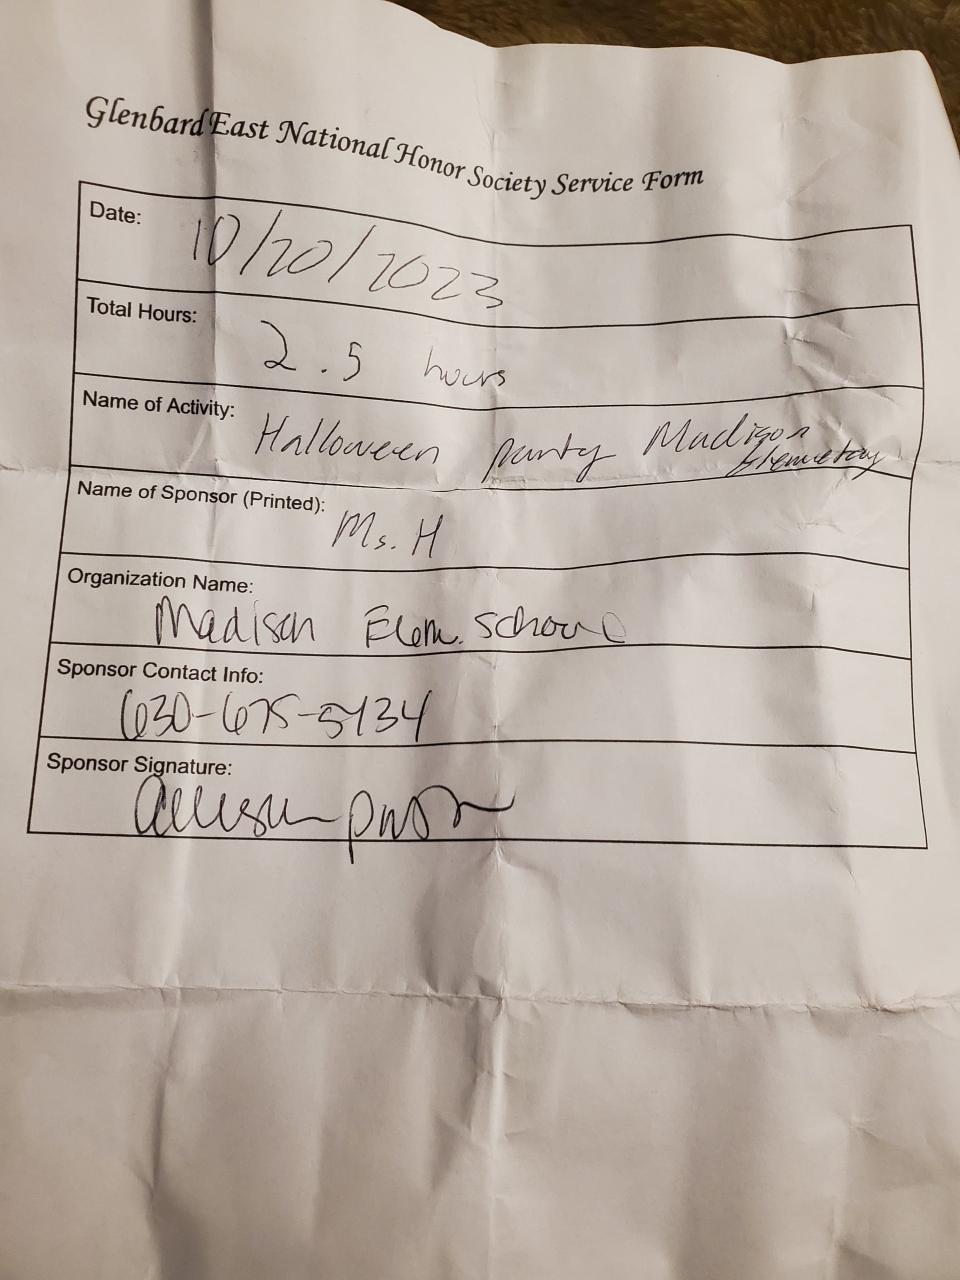 Glenbard East National Honor Society Service Form
Date: 10/20/2023
Total Hours: 2.5 hours
Name of Activity: Halloween party Madison
Elementary
Name of Sponsor (Printed): Ms. H
Organization Name:
Madison Elem. School
Sponsor Contact Info:
630-675-5434
Sponsor Signature:
Allison